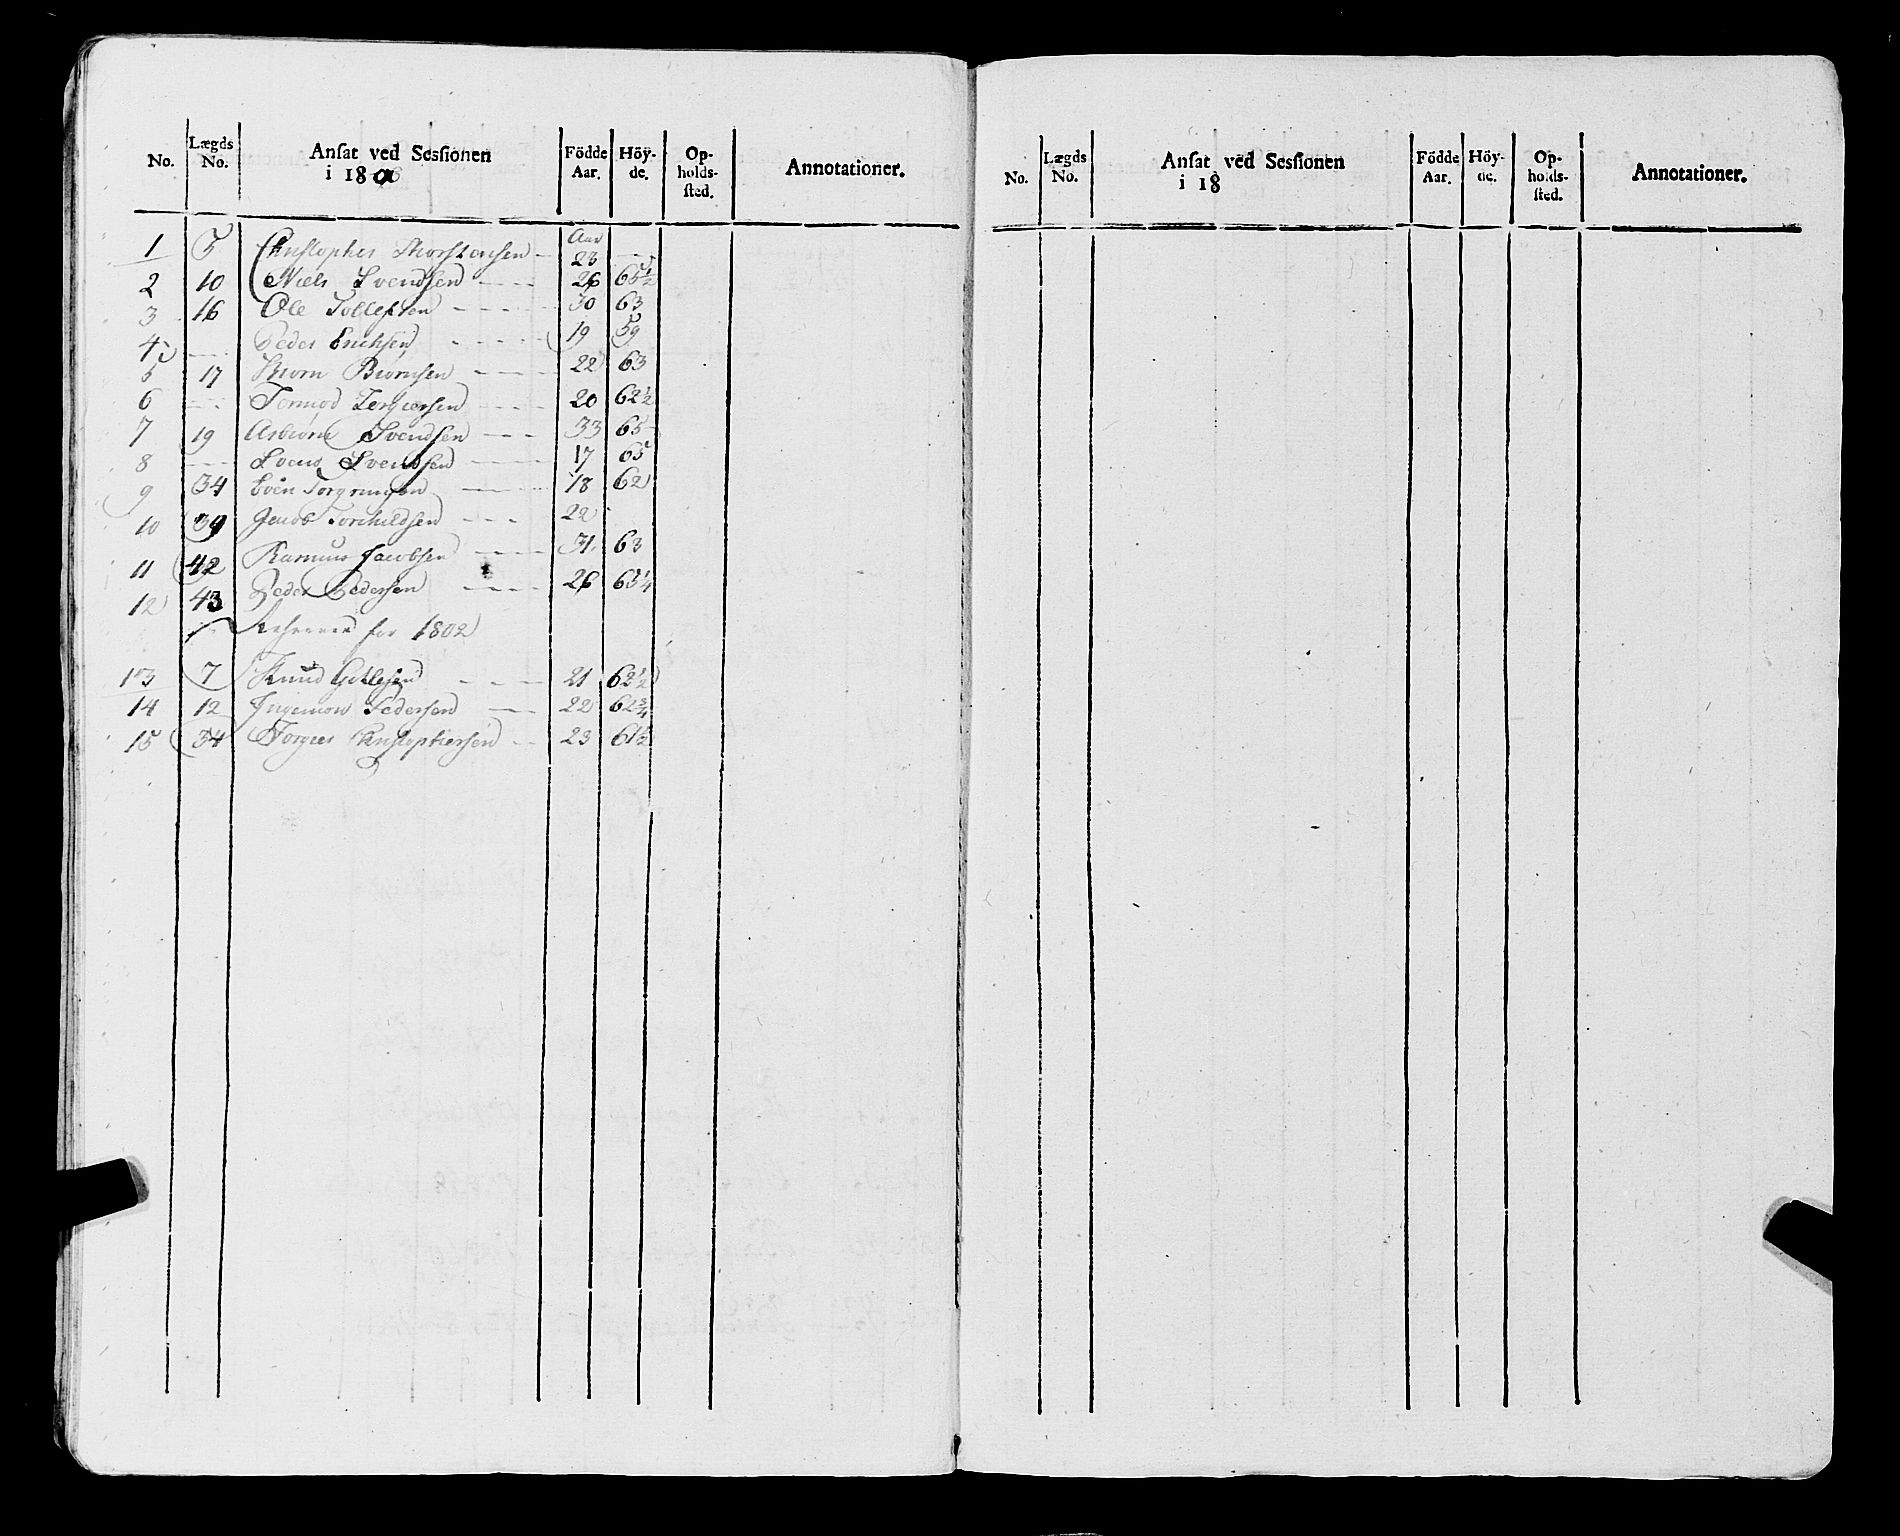 No. Lægds No. Ansat ved Sessionen i 180 Födde Aar. Höy-de. Op-holds-sted. Annotationer.
Aar
1 5 Christopher Thorstensen - 23 -
2 10 Niels Svendsen ---- 26 65 1/2
3 16 Ole Tollefsen ---- 30 63
4 -- Peder Erichsen ---- 19 59
5 17 Biörnsen ---- 22 63
6 -- Tormod Tergiersen ---- 20 62 1/2
7 19 Asbiörn Svendsen --- 33 65
8 --- Svend Svendsen --- 17 65
9 34 Even --- 18 62
10 39 Jacob Torchildsen --- 22
11 42 Rasmus Jacobsen ---- 31 63
12 43 Peder Pedersen ---- 26 63 1/4
Reserver for 1802
13 7 Knud --- 21 62 1/2
14 12 Pedersen --- 22 62 3/4
15 34 Torgier Christophersen -- 23 61 1/2
No. Lægds No. Ansat ved Sessionen i 18 Födde Aar. Höy-de. Op-holds-sted. Annotationer.